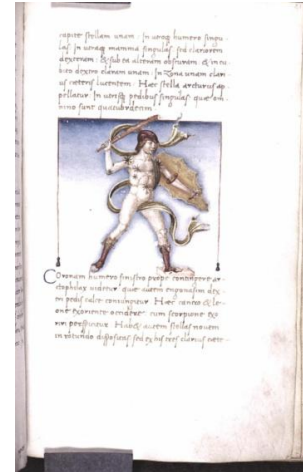 capite stellam unam. In utroq; humero singu-
las. In utraq; mamma singulas, sed clariorem
dexteram. & sub ea alteram obscuram. & in cu-
bito dextro claram unam. In Zona unam clari-
us ceteris lucentem. Haec stella arcturus ap-
pellatur. In utrisq; pedibus singulas. quae om-
nino sunt quatuordecim
Coronam humero sinistro prope contingere ar-
ctophylax videtur. quae autem engonasim dex-
tri pedis calce contingitur. Haec cancro & le-
one exoriente occidere. cum scorpione exo-
riri perspicitur. Habet autem stellas novem
in rotundo dispositas sed ex his tres clarius cete-